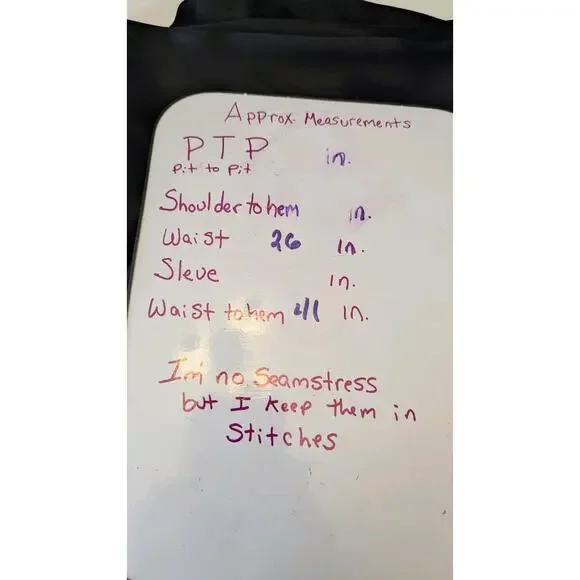 Approx. Measurements
PTP in.
Pit to Pit
Shoulder to hem in.
Waist 26 in.
Sleve in.
Waist to hem 41 in.
I'm no Seamstress
but I keep them in
Stitches